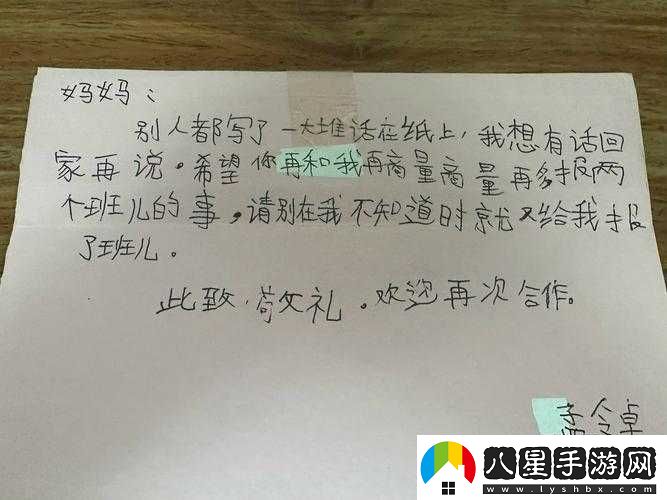 妈妈：
别人都写了一大堆话在纸上，我想有话回
家再说。希望你再和我再商量商量再多报两
个班儿的事，请别在我不知道时就又给我报
了班儿。
此致，苟文礼。欢迎再次合作。
孟令卓
八星手游网
www.lyshbx.com